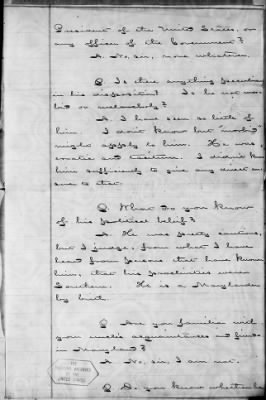 President of the United States, or
any officer of the Government?
A. No, sir, none whatever.
Q Is there anything peculiar
in his disposition? Is he not mor-
bid or melancholy?
A. I have seen so little of
him. I don't know but "morbid"
might apply to him. He was
erratic and I didn't know
him sufficiently to give any direct
to that.
Q. What do you know
of his political belief?
A. He was pretty cautious,
but I judge, from what I have
heard from persons that have known
him, that his proclivities were
Southern. He is a Marylander
by birth.
Q Are you familiar with
your uncle's acquaintances and friends
in Maryland?
A No, sir, I am not.
Q. Do you know whether he
THE
NATIONAL ARCHIVES
OF THE
UNITED STATES